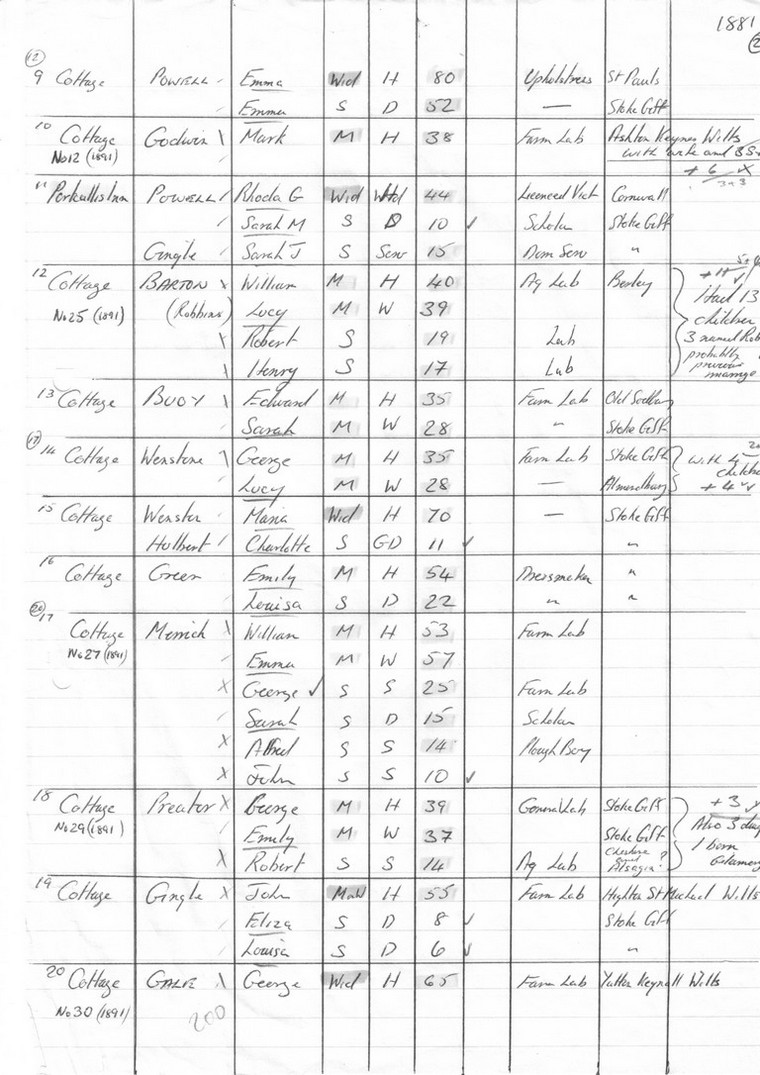 1881
(12)
9 Cottage POWELL Emma Wid H 80 Upholstress St Pauls
Emma S D 52 — Stoke Giff
10 Cottage Godwin Mark M H 38 Farm Lab Ashton Keynes Wilts
No 12 (1891) with wife and 3S
+ 6
3+3
11 Portcullis Inn POWELL Rhoda G Wid 44 Licenced Vict Cornwall
Sarah M S D 10 ✓ Scholar Stoke Giff
Gingle Sarah J S Serv 15 Dom Serv "
12 Cottage BARTON x William M H 40 Ag Lab Besley
No 25 (1891) (Robbins) Lucy M W 39 Had 13
Robert S 19 Lab children
3 named Rob
Henry S 17 Lab probably
previous
marriage
13 Cottage BUOY Edward M H 35 Farm Lab Old Sodbury
Sarah M W 28 " Stoke Giff
14 Cottage Wenstone George M H 35 Farm Lab Stoke Giff with 4
Lucy M W 28 — Almondbury + 4
15 Cottage Wenster Maria Wid H 70 — Stoke Giff
Hulbert Charlotte S GD 11 ✓ "
16 Cottage Green Emily M H 54 Dressmaker "
Louisa S D 22 " "
(20) 17
Cottage Merrich William M H 53 Farm Lab
No 27 (1891) Emma M W 57
x George ✓ S S 25 Farm Lab
Sarah S D 15 Scholar
x Alfred S S 14 Plough Boy
x John S S 10 ✓
18 Cottage Preator x George M H 39 General Lab Stoke Giff + 3
No 29 (1891) Emily M W 37 Stoke Giff Also 3
x Robert S S 14 Ag Lab Cheshire Alsagin? 1 born
19 Cottage Gingle x John H 55 Farm Lab Highton St Michael Wilts
Eliza S D 8 ✓ Stoke Giff
Louisa S D 6 ✓ "
20 Cottage GALE George Wid H 65 Farm Lab Yatton Keynell Wilts
No 30 (1891) 200